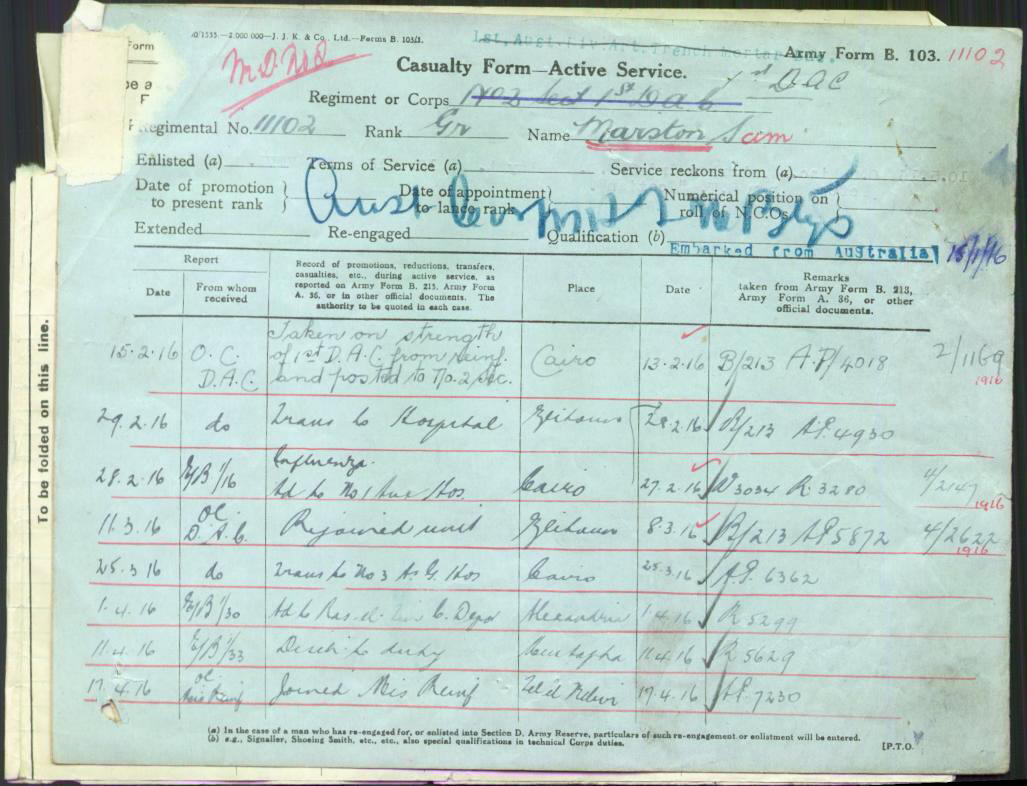 Form
/0 1555.—2 000 000—J. J. K. & Co., Ltd.—Forms B. 103/1.
1st. Aust. Div. Art. Trench Mortar
Army Form B. 103. 11102
Casualty Form—Active Service.
1st DAC
Regiment or Corps Sect 1st DAC
Regimental No. 11102 Rank Gr Name Marston Sam
Enlisted (a) Terms of Service (a) Service reckons from (a)
Date of promotion to present rank } Date of appointment to lance rank } Numerical position on roll of N.C.Os. }
Aust
Extended Re-engaged Qualification (b)
Embarked from Australia 15/1/16
Report
Date
From whom received
Record of promotions, reductions, transfers, casualties, etc., during active service, as reported on Army Form B. 213, Army Form A. 36, or in other official documents. The authority to be quoted in each case.
Place
Date
Remarks taken from Army Form B. 213, Army Form A. 36, or other official documents.
15.2.16 O.C. D.A.C. Taken on strength of 1st D.A.C. from reinf. and posted to No. 2 Sec. Cairo 13.2.16 B/213 A.P/4018 2/1169 1916
29.2.16 do Trans to Hospital 28.2.16 B/213 A.P. 4930
28.2.16 E/B 1/16 Influenza. Ad to No 1 Aux Hos. Cairo 27.2.16 W3034 R.3280 4/2147 1916
11.3.16 OC D.A.C. Rejoined unit 8.3.16 B/213 A.P. 5872 4/2622 1916
25.3.16 do Trans to No 3 A.G. Hos Cairo 25.3.16 A.P. 6362
1.4.16 E/B 1/30 Ad to Ras-el- C. Depot Alexandria 1.4.16 R 5299
11.4.16 E/B 1/33 Disch to duty Mustapha 11.4.16 R 5629
17.4.16 OC Reinf Joined Reinf Tel el Kebir 17.4.16 A.P. 7230
To be folded on this line.
(a) In the case of a man who has re-engaged for, or enlisted into Section D. Army Reserve, particulars of such re-engagement or enlistment will be entered.
(b) e.g., Signaller, Shoeing Smith, etc., etc., also special qualifications in technical Corps duties.
[P.T.O.